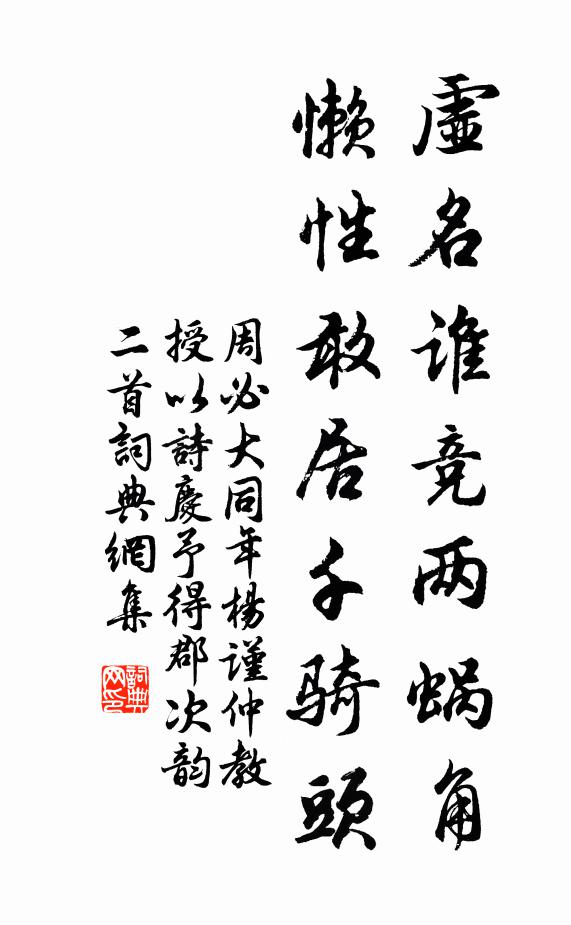 虛名谁竞两蜗角
懒性敢居千骑頭
周必大同年楊謹仲教
授以詩慶予得郡次韵
二首詞典網集
詞典
网印